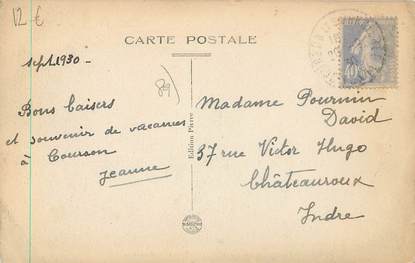 12 €
CARTE POSTALE
sept. 1930 -
89
Bons baisers
et souvenir de vacances
à Courson
Jeanne
Edition Piarre
Madame Pournin
David
37 rue Victor Hugo
Châteauroux
Indre